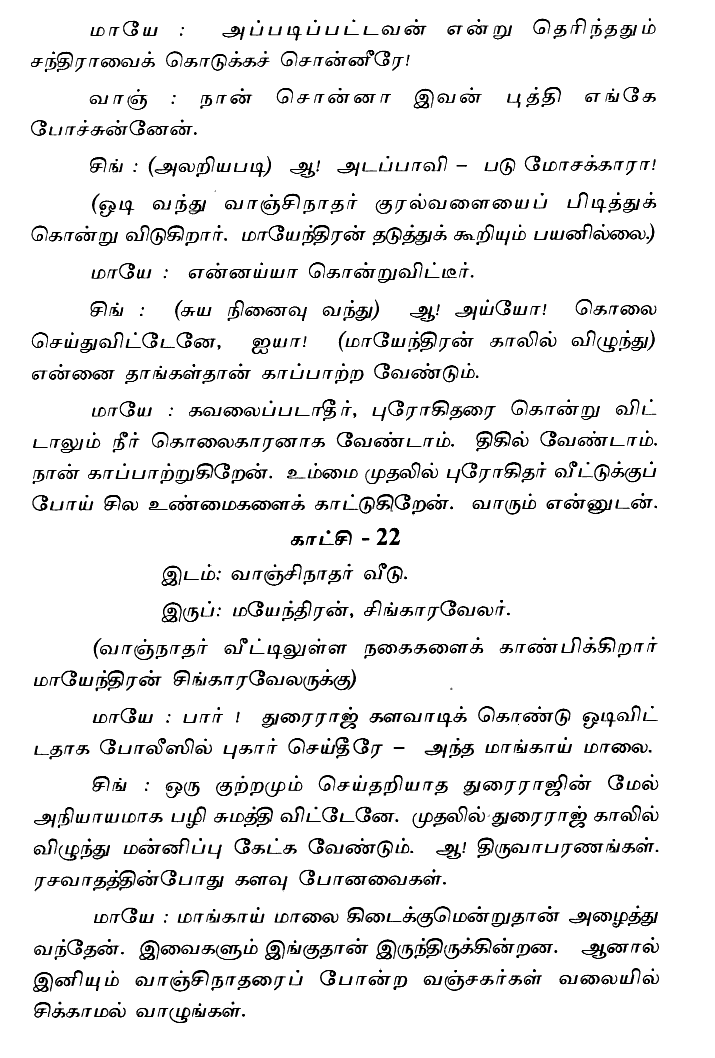 மாயே : அப்படிப்பட்டவன் என்று தெரிந்ததும்
சந்திராவைக் கொடுக்கச் சொன்னீரே!
வாஞ் : நான் சொன்னா இவன் புத்தி எங்கே
போச்சுன்னேன்.
சிங் : (அலறியபடி) ஆ! அடப்பாவி – படு மோசக்காரா!
(ஓடி வந்து வாஞ்சிநாதர் குரல்வளையைப் பிடித்துக்
கொன்று விடுகிறார். மாயேந்திரன் தடுத்துக் கூறியும் பயனில்லை.)
மாயே : என்னய்யா கொன்றுவிட்டீர்.
சிங் : (சுய நினைவு வந்து) ஆ! அய்யோ! கொலை
செய்துவிட்டேனே, ஐயா! (மாயேந்திரன் காலில் விழுந்து)
என்னை தாங்கள்தான் காப்பாற்ற வேண்டும்.
மாயே : கவலைப்படாதீர், புரோகிதரை கொன்று விட்
டாலும் நீர் கொலைகாரனாக வேண்டாம். திகில் வேண்டாம்.
நான் காப்பாற்றுகிறேன். உம்மை முதலில் புரோகிதர் வீட்டுக்குப்
போய் சில உண்மைகளைக் காட்டுகிறேன். வாரும் என்னுடன்.
காட்சி - 22
இடம்: வாஞ்சிநாதர் வீடு.
இருப்: மயேந்திரன், சிங்காரவேலர்.
(வாஞ்நாதர் வீட்டிலுள்ள நகைகளைக் காண்பிக்கிறார்
மாயேந்திரன் சிங்காரவேலருக்கு)
மாயே : பார் ! துரைராஜ் களவாடிக் கொண்டு ஓடிவிட்
டதாக போலீஸில் புகார் செய்தீரே – அந்த மாங்காய் மாலை.
சிங் : ஒரு குற்றமும் செய்தறியாத துரைராஜின் மேல்
அநியாயமாக பழி சுமத்தி விட்டேனே. முதலில் துரைராஜ் காலில்
விழுந்து மன்னிப்பு கேட்க வேண்டும். ஆ! திருவாபரணங்கள்.
ரசவாதத்தின்போது களவு போனவைகள்.
மாயே : மாங்காய் மாலை கிடைக்குமென்றுதான் அழைத்து
வந்தேன். இவைகளும் இங்குதான் இருந்திருக்கின்றன. ஆனால்
இனியும் வாஞ்சிநாதரைப் போன்ற வஞ்சகர்கள் வலையில்
சிக்காமல் வாழுங்கள்.